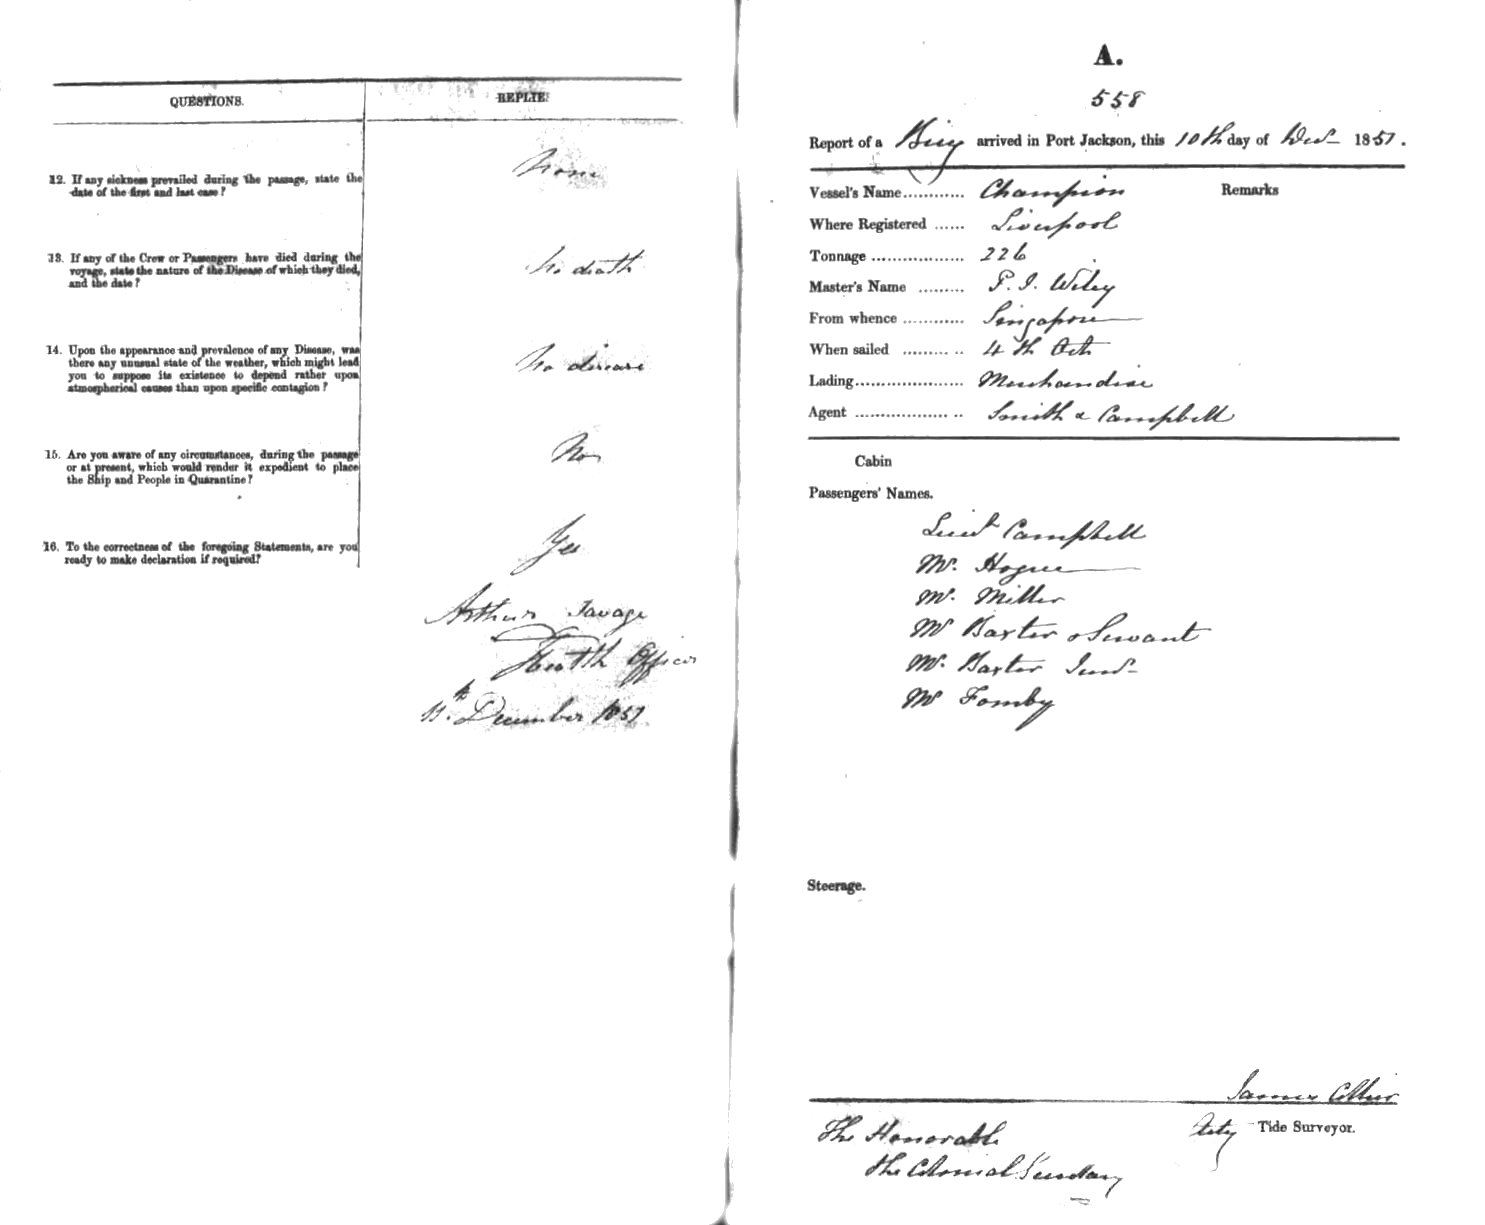 QUESTIONS.
REPLIE
12. If any sickness prevailed during the passage, state the
date of the first and last case?
None
13. If any of the Crew or Passengers have died during the
voyage, state the nature of the Disease of which they died,
and the date?
No death
14. Upon the appearance and prevalence of any Disease, was
there any unusual state of the weather, which might lead
you to suppose its existence to depend rather upon
atmospherical causes than upon specific contagion?
No disease
15. Are you aware of any circumstances, during the passage
or at present, which would render it expedient to place
the Ship and People in Quarantine?
No
16. To the correctness of the foregoing Statements, are you
ready to make declaration if required?
Yes
Arthur Savage
Health Officer
11th December 1851
A.
558
Report of a Brig arrived in Port Jackson, this 10th day of Decr 1851.
Vessel's Name............ Champion Remarks
Where Registered ...... Liverpool
Tonnage .................. 226
Master's Name ......... P. J. Wiley
From whence ............ Singapore
When sailed ......... .. 4th Octr
Lading..................... Merchandise
Agent .................. .. Smith & Campbell
Cabin
Passengers' Names.
Lieut Campbell
Mr. Hogue
Mr. Miller
Mr Baxter & Servant
Mr. Baxter Junr
Mr Fomby
Steerage.
James Collier
Acty Tide Surveyor.
The Honorable
the Colonial Secretary